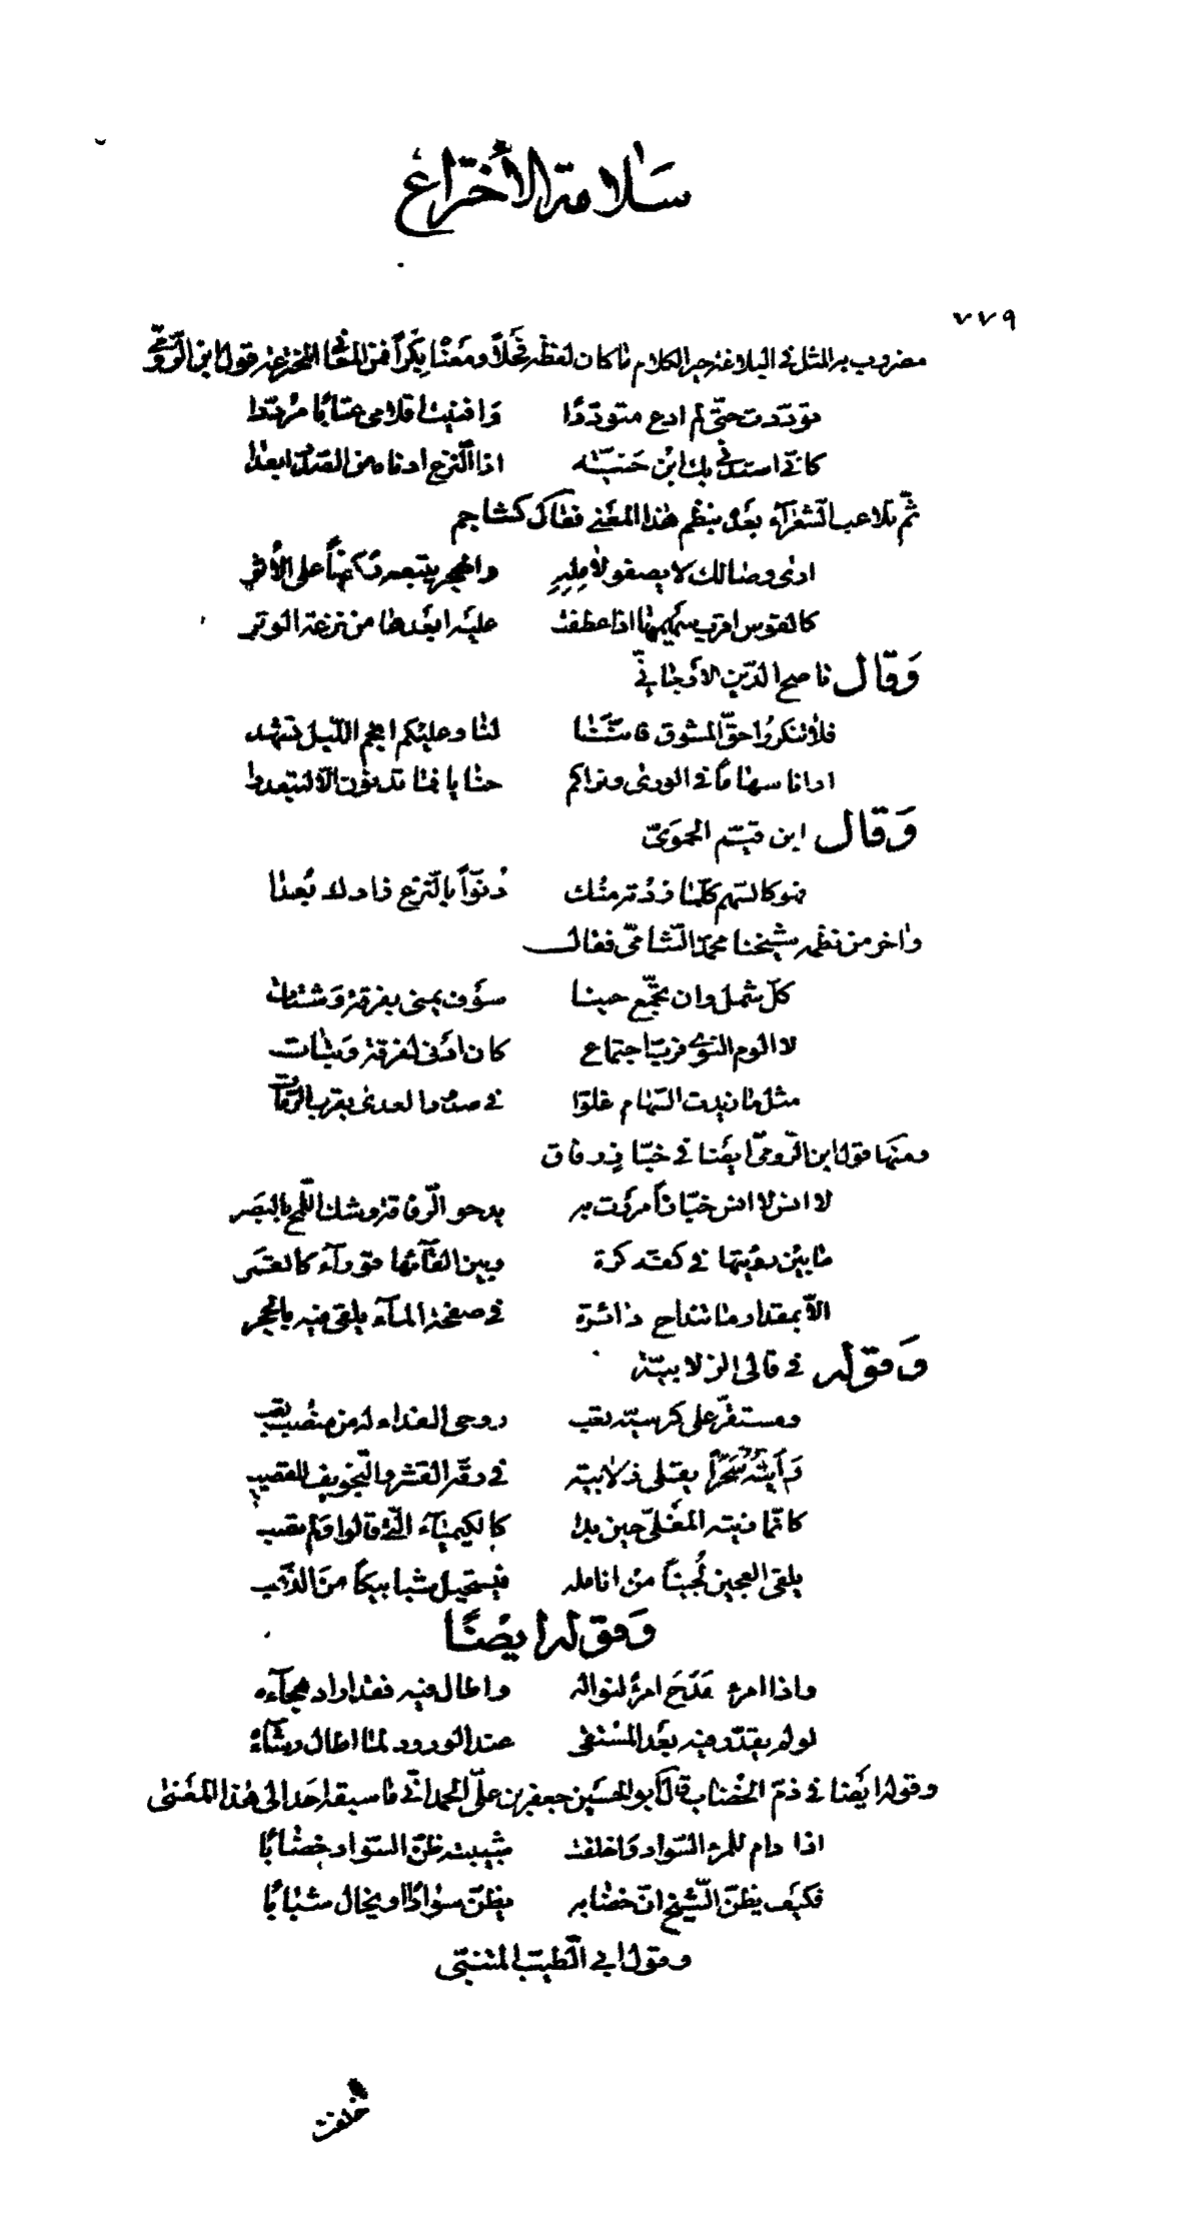 سلامة الأختراع
٧٧٩
مضروب به المثل في البلاغة خير الكلام ما كان لفظه فحلاً ومعناه بكراً فمن المعاني المخترعة قول ابن الرومي
توددت حتى لم ادع متوددا وافنيت اقلامي عتابا مرددا
كاني استدني بك ابن حنية اذا النزع ادناه من الصدر ابعدا
ثم تلاعب الشعراء بعده بنظم هذا المعنى فقال كشاجم
ادنى وصالك لا يصفو لآمله والهجر يتبعه ركضاً على الأثر
كالقوس اقرب سهميها اذا عطفت عليه ابعدها من نزعة الوتر
وقال ناصح الدين الارجاني
فلا تنكروا حق المشوق فاننا لنا وعليكم انجم الليل تشهد
ارانا سهاما في الورى ونراكم حنايا فما تدنون الا لتبعدوا
وقال ابن قسيم الحموي
فهو كالسهم كلما زدته منك دنوّاً بالنزع زادك بعدا
واخر من نظمه شيخنا محمد الشامي فقال
كل شمل وان تجمع حينا سوف يمنى بفرقة وشتات
لا الوم النوى فرب اجتماع كان ادنى لفرقة وشتات
مثل ما زيدت السهام غلوا في صدور العدى بقرب الرماة
ومنها قول ابن الرومي ايضا في خباز رقاق
لا انس لا انس خبازاً مررت به يدحو الرقاقة وشك اللمح بالبصر
ما بين رؤيتها في كفه كرة وبين القائها قوراء كالقمر
الا بمقدار ما تنداح دائرة في صفحة الماء يلقى فيه بالحجر
وقوله في قالي الزلابية
ومستقر على كرسيه تعب روحي الفداء له من منصب نصب
رأيته سحراً يقلي زلابية في رقة القشر والتجويف كالقصب
كانما زيته المغلي حين بدا كالكيمياء التي قالوا ولم تصب
يلقي العجين لجيناً من انامله فيستحيل شبابيكاً من الذهب
وقوله ايضاً
واذا امرء مدح امرأ لنواله واطال فيه فقد اراد هجاءه
لو لم يقدر فيه بعد المستقى عند الورود لما اطال رشاءه
وقوله ايضا في ذم الخضاب قال أبو الحسين جعفر بن علي الحمداني ما سبقه احد الى هذا المعنى
اذا دام للمرء السواد واخلقت شبيبته ظن السواد خضابا
فكيف يظن الشيخ ان خضابه يظن سوادا او يخال شبابا
وقول ابي الطيب المتنبي
خلفت